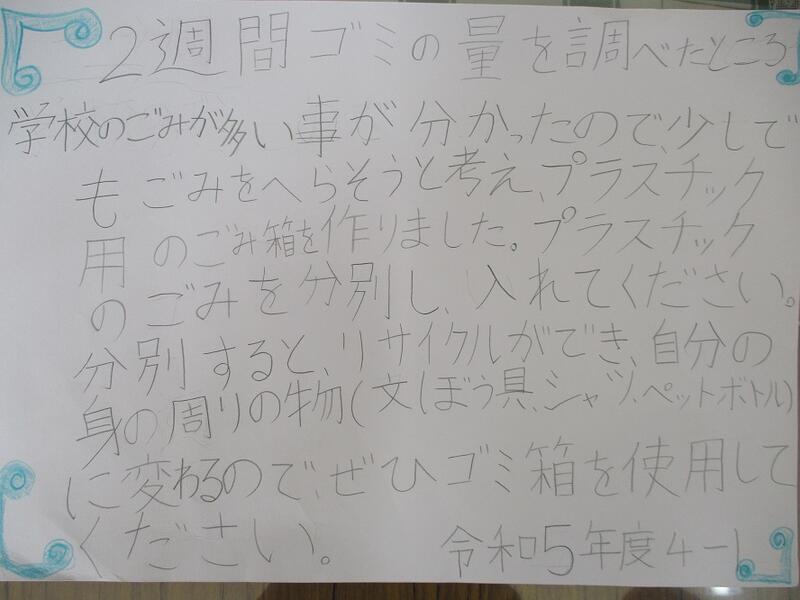 2週間ゴミの量を調べたところ
学校のごみが多い事が分かったので、少しで
もごみをへらそうと考え、プラスチック
用のごみ箱を作りました。プラスチック
のごみを分別し、入れてください。
分別すると、リサイクルができ、自分の
身の周りの物(文ぼう具、シャツ、ペットボトル)
に変わるので、ぜひゴミ箱を使用して
ください。
令和5年度4-1